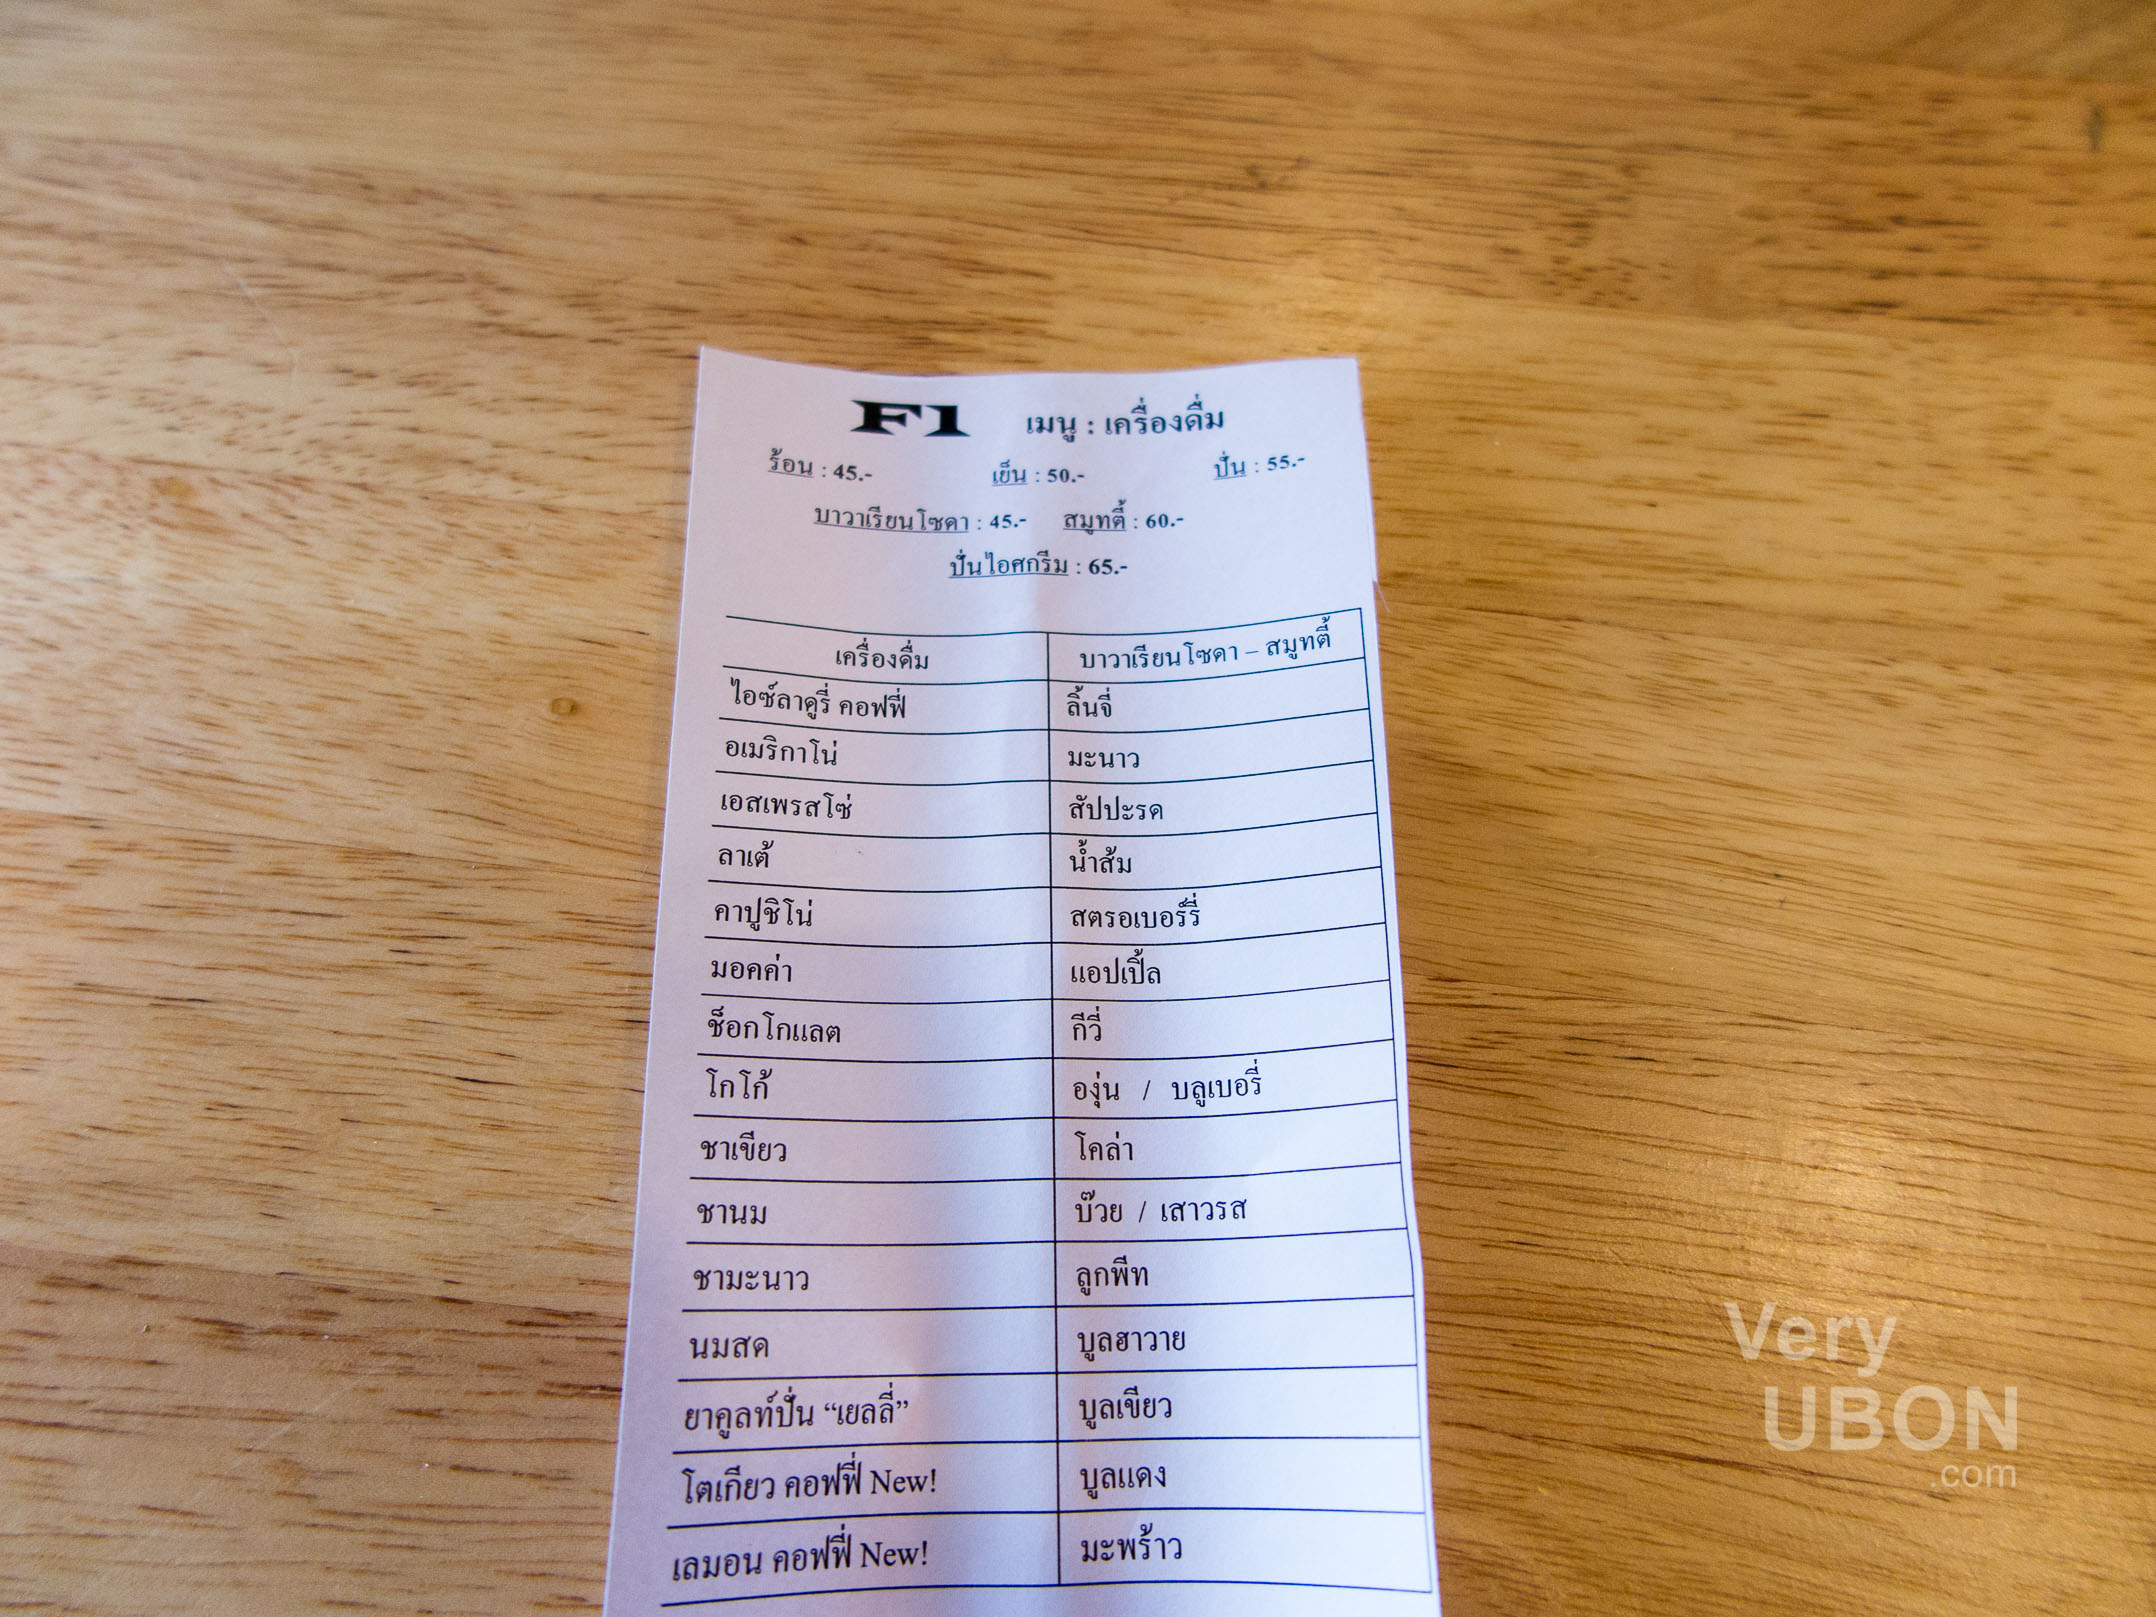 F1 เมนู : เครื่องดื่ม
ร้อน : 45.- เย็น : 50.- ปั่น : 55.-
บาวาเรียนโซดา : 45.- สมูทตี้ : 60.-
ปั่นไอศกรีม : 65.-
เครื่องดื่ม บาวาเรียนโซดา – สมูทตี้
ไอซ์ลาคูรี่ คอฟฟี่ ลิ้นจี่
อเมริกาโน่ มะนาว
เอสเพรสโซ่ สัปปะรด
ลาเต้ น้ำส้ม
คาปูชิโน่ สตรอเบอร์รี่
มอคค่า แอปเปิ้ล
ช็อกโกแลต กีวี่
โกโก้ องุ่น / บลูเบอรี่
ชาเขียว โคล่า
ชานม บ๊วย / เสาวรส
ชามะนาว ลูกพีท
นมสด บูลฮาวาย
ยาคูลท์ปั่น “เยลลี่” บูลเขียว
โตเกียว คอฟฟี่ New! บูลแดง
เลมอน คอฟฟี่ New! มะพร้าว
Very
UBON
.com